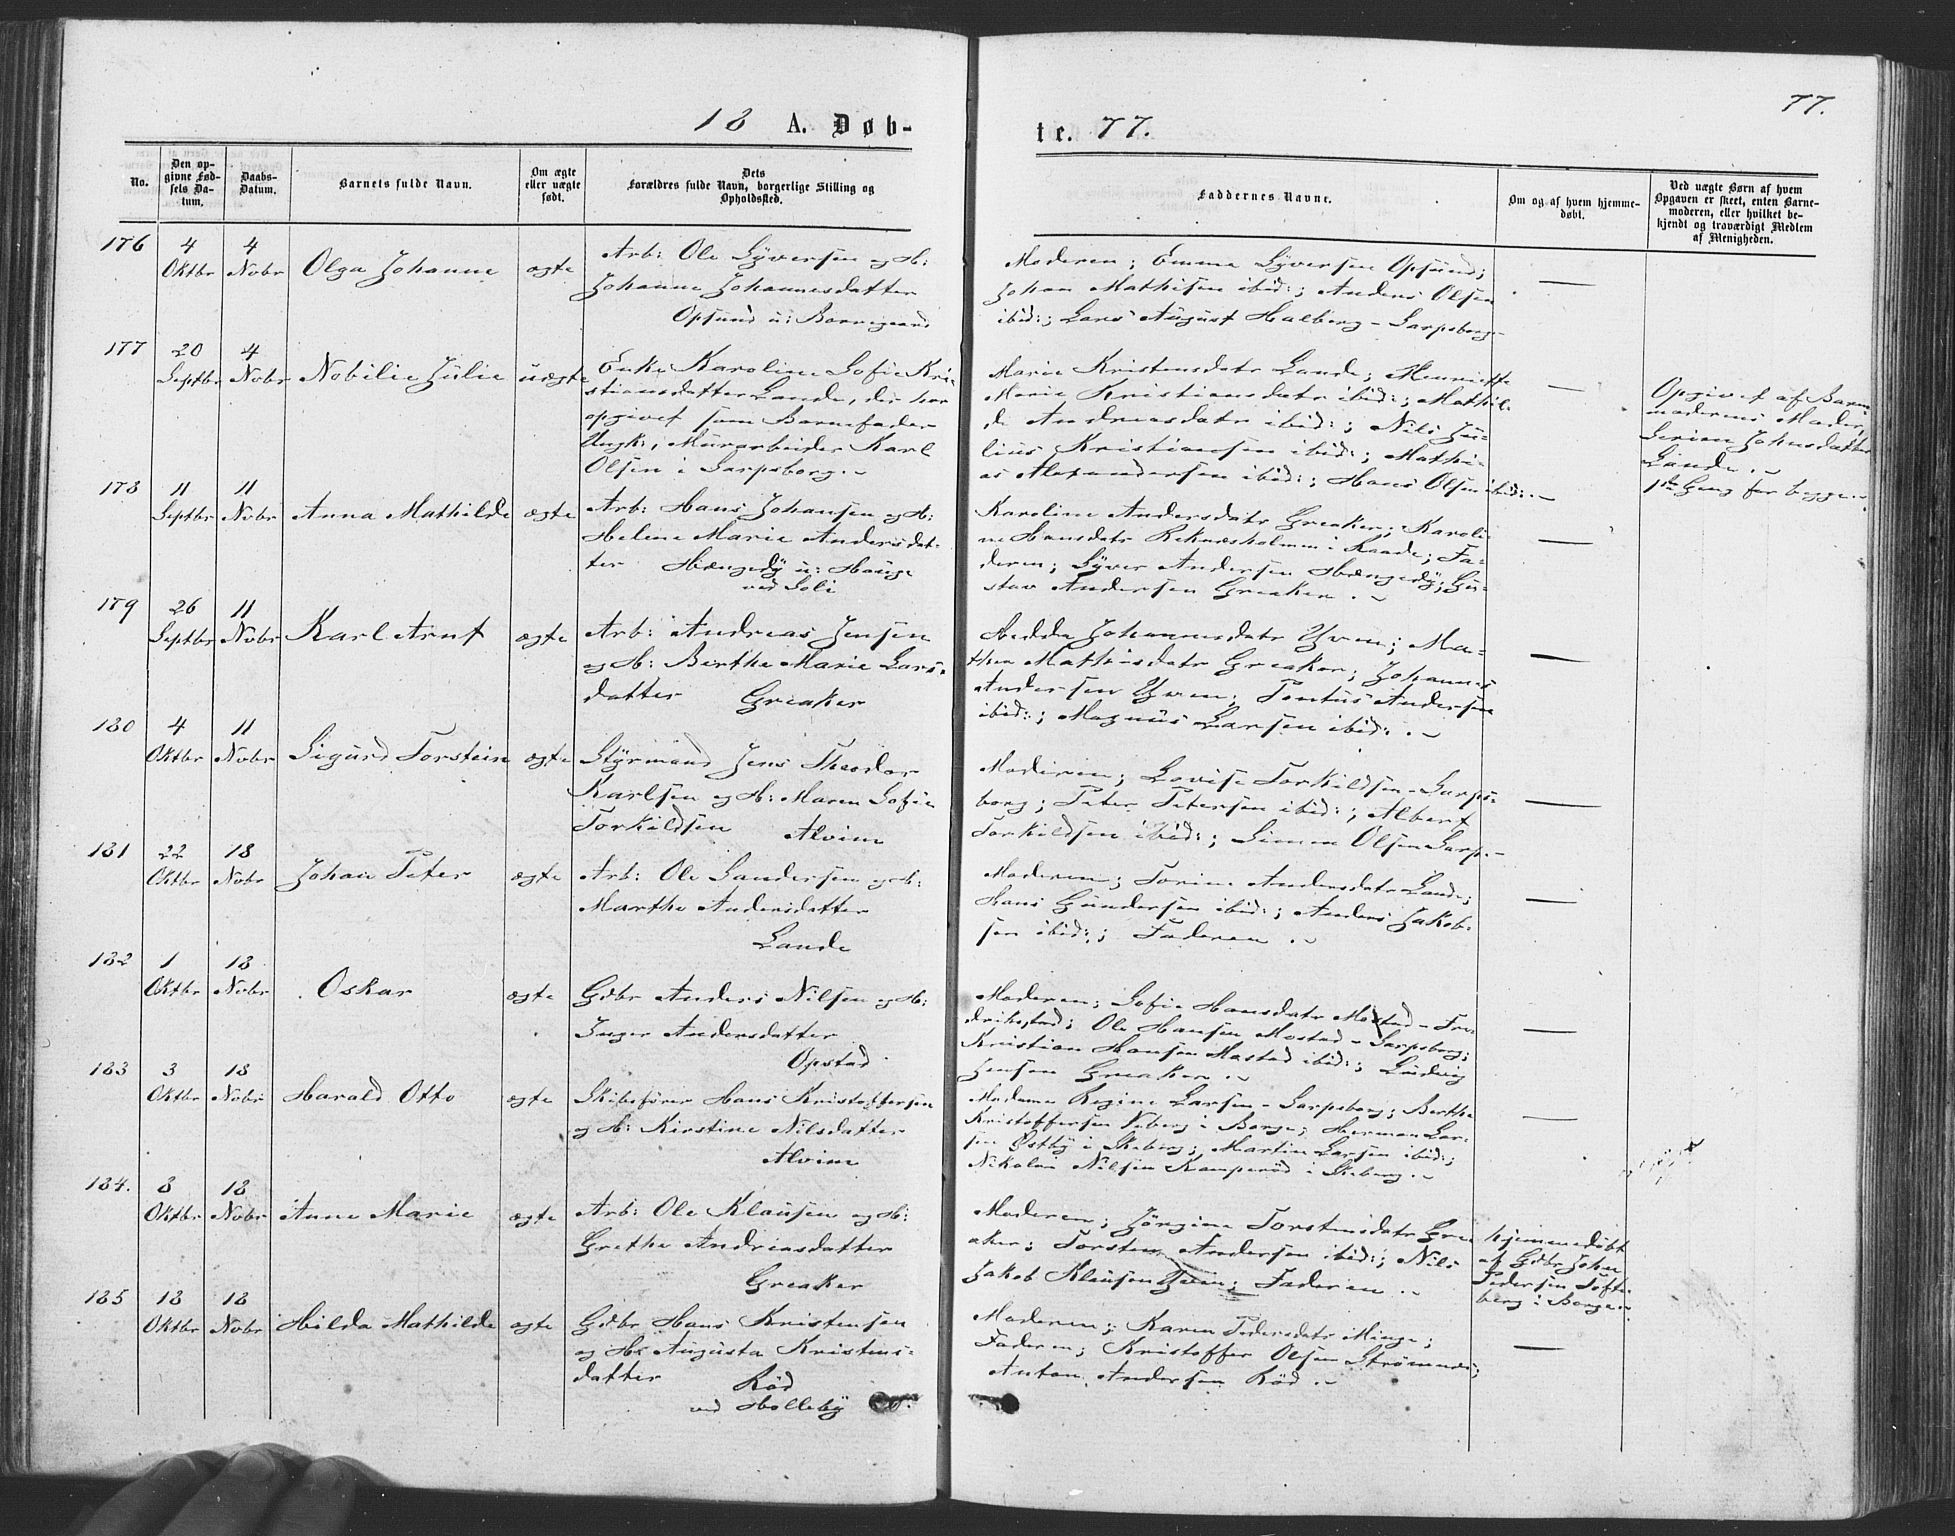 77.
18 A. Døb-
te. 77.
No.
Den op-
givne Fød-
sels Da-
tum.
Daabs-
Datum.
Barnets fulde Navn.
Om ægte
eller uægte
født.
Dets
Forældres fulde Navn, borgerlige Stilling og
Opholdssted.
Faddernes Navne.
Om og af hvem hjemme-
døbt.
Ved uægte Børn af hvem
Opgaven er skeet, enten Barne-
moderen, eller hvilket be-
kjendt og troværdigt Medlem
af Menigheden.
176 4 Oktbr 4 Novbr Olga Johanne ægte
Arb: Ole Syversen og H:
Johanne Johannesdatter
Opsund u: Borregaard
Moderen; Emma Syversen Opsund;
Johan Mathisen ibid:; Anders Olsen
ibid:; Lars August Halberg - Sarpsborg -
177 20 Septbr 4 Novbr Nobilie Julie uægte
Enke Karoline Sofie Kri-
stiansdatter Lande, der har
opgivet som Barnefader
Ungk:, Murarbeider Karl
Olsen i Sarpsborg. -
Marie Kristensdatr Lande; Henriette
Marie Kristiansdatr ibid:; Mathil-
de Andreasdatr ibid:; Nils Ju-
lius Kristiansen ibid:; Mathi-
as Alexandersen ibid:; Hans Olsen ibid: -
Opgivet af Barne
moderens Moder,
Serine Johnsdatter
Lande. -
1ste Gang for begge. -
178 11 Septbr 11 Novbr Anna Mathilde ægte
Arb: Hans Johansen og H:
Helene Marie Andersdat-
ter Hængedy u: Hauge
ved Soli
Karoline Andersdatr Greaker; Karoli-
ne Hansdatr Reknæsholmen i Raade; Fa-
deren; Syver Andersen Hængedy; Gu-
stav Andersen Greaker. -
179 26 Septbr 11 Novbr Karl Arnt ægte
Arb: Andreas Jensen
og H: Berthe Marie Lars-
datter Greaker
Hedda Johannesdatr Yven; Ma-
thea Mathisdatr Greaker; Johannes
Andersen Yven; Pontus Andersen
ibid:; Magnus Larsen ibid: -
180 4 Oktbr 11 Novbr Sigurd Torstein ægte
Styrmand Jens Theodor
Karlsen og H: Maren Sofie
Torkildsen Alvim
Moderen; Lovise Torkildsen - Sarps-
borg; Peter Petersen ibid:; Albert
Torkildsen ibid:; Simen Olsen Sarp. -
181 22 Oktbr 18 Novbr Johan Peter ægte
Arb: Ole Gundersen og H:
Marthe Andersdatter
Lande
Moderen; Torine Andersdatr Lande;
Hans Gundersen ibid:; Anders Jakob-
sen ibid:; Faderen. -
182 1 Oktbr 18 Novbr Oskar ægte
Gdbr Anders Nilsen og H:
Inger Andersdatter
Opstad
Moderen; Sofie Hansdatr Mostad - Fre-
drikstad; Ole Hansen Mostad - Sarpsborg;
Kristian Hansen Mostad ibid:; Ludvig
Jensen Greaker. -
183 3 Oktbr 18 Novbr Harald Otto ægte
Skibsfører Hans Kristoffersen
og H: Kirstine Nilsdatter
Alvim
Madame Regine Larsen - Sarpsborg; Berthe
Kristoffersen Viberg i Borge; Herman Lar-
sen Østby i Skeberg; Martin Larsen ibid:;
Nikolai Nilsen Kamperød i Skeberg. -
184. 8 Oktbr 18 Novbr Anne Marie ægte
Arb: Ole Klausen og H:
Grethe Andreasdatter
Greaker
Moderen; Jørgine Torstensdatr Gre-
aker; Torsten Andersen ibid:; Nils
Jakob Klausen Yven; Faderen. -
Hjemmedøbt
af Gdbr Johan
Pedersen Tofte-
berg i Borge. -
185 18 Oktbr 18 Novbr Hilda Mathilde ægte
Gdbr Hans Kristensen
og H: Augusta Kristens-
datter Rød
ved Holleby
Moderen; Karen Pedersdatr Minge;
Faderen; Kristoffer Olsen Strømnæs;
Anton Andersen Rød. -